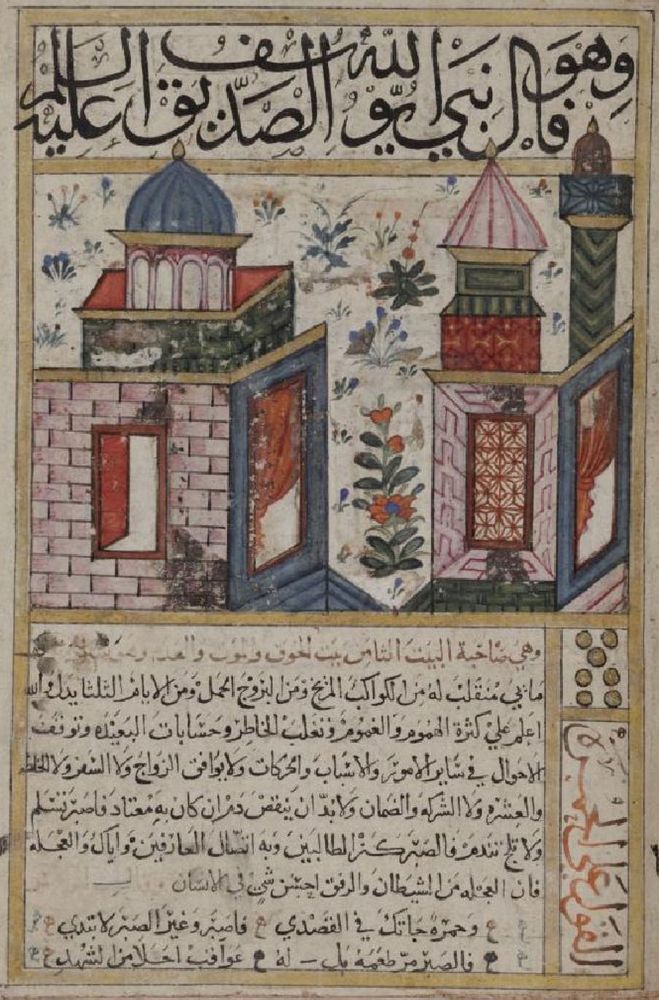 وهو فال نبي الله يوسف الصديق عليه السلم
وهي صاحبة البيت الثامن بيت الخوف والموت والعدم
مايي منقلب له من الكواكب المريخ ومن البروج الحمل ومن الايام الثلثا يدل والله
اعلم علي كثرة الهموم والغموم وتغلب الخاطر وحسابات البعيده وتوقف
الاحوال في سآير الامور والاسباب والحركات ولايوافق الزواج ولا السفر ولا الخلطه
والعشره ولا الشركه والضمان ولابد ان ينقص دم ان كان به معتاد فاصبر تسلم
ولا تلج تندم فالصبر كنز الطالبين وبه العارفين واياك والعجله
فان العجله من الشيطان والرفق احسن شي في الانسان
وحمره جاتك في القصدي فاصبر وغير الصبر لاتبدي
فالصبر مر طعمه بل له عواقب احلا من الشهد
القول علي